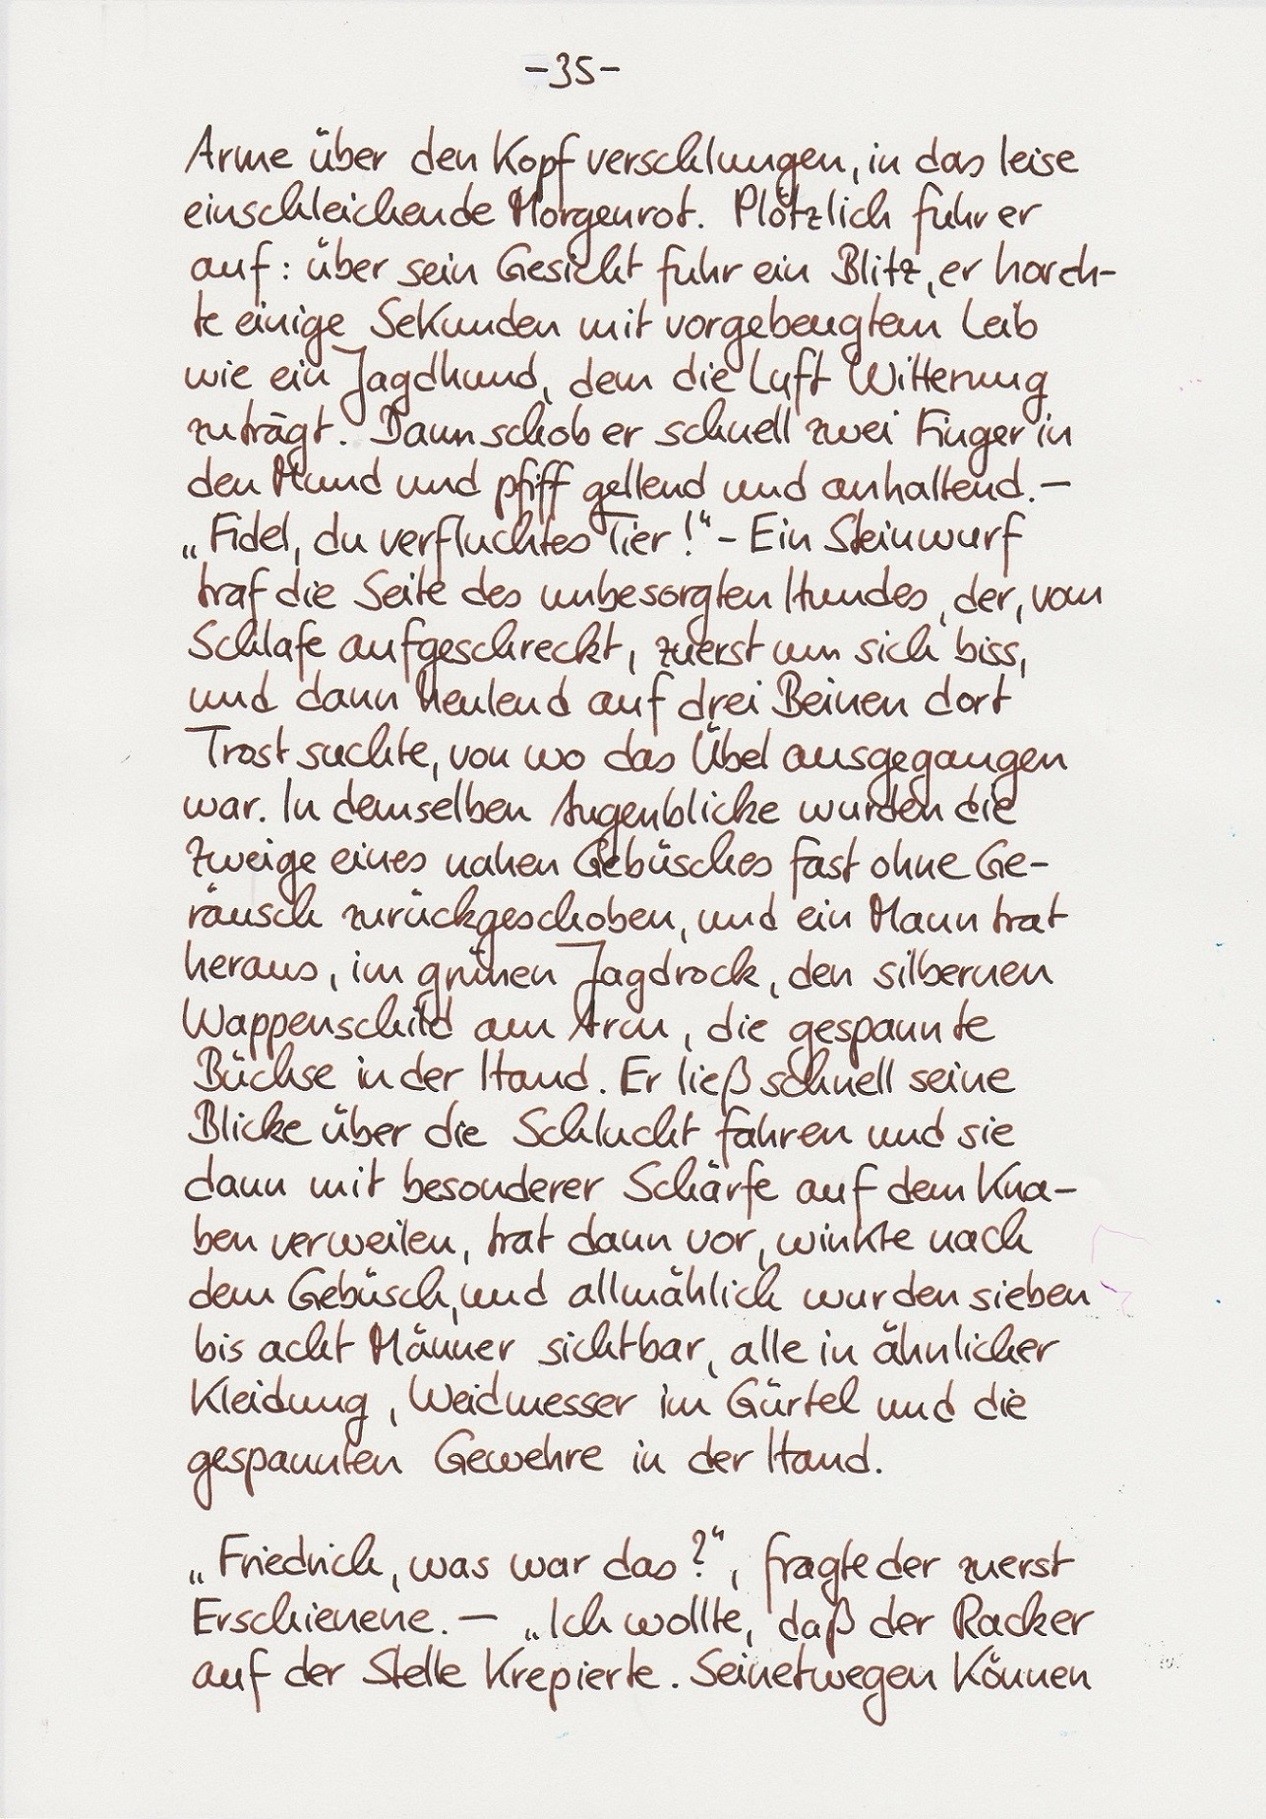 -35-
Arme über den Kopf verschlungen, in das leise
einschleichende Morgenrot. Plötzlich fuhr er
auf: über sein Gesicht fuhr ein Blitz, er horch-
te einige Sekunden mit vorgebeugtem Leib
wie ein Jagdhund, dem die Luft Witterung
zuträgt. Dann schob er schnell zwei Finger in
den Mund und pfiff gellend und anhaltend. —
„Fidel, du verfluchtes Tier!“ – Ein Steinwurf
traf die Seite des unbesorgten Hundes, der, vom
Schlafe aufgeschreckt, zuerst um sich biss,
und dann heulend auf drei Beinen dort
Trost suchte, von wo das Übel ausgegangen
war. In demselben Augenblicke wurden die
Zweige eines nahen Gebüsches fast ohne Ge-
räusch zurückgeschoben, und ein Mann trat
heraus, im grünen Jagdrock, den silbernen
Wappenschild am Arm, die gespannte
Büchse in der Hand. Er ließ schnell seine
Blicke über die Schlucht fahren und sie
dann mit besonderer Schärfe auf dem Kna-
ben verweilen, trat dann vor, winkte nach
dem Gebüsch, und allmählich wurden sieben
bis acht Männer sichtbar, alle in ähnlicher
Kleidung, Weidmesser im Gürtel und die
gespannten Gewehre in der Hand.
„Friedrich, was war das?“, fragte der zuerst
Erschienene. — „Ich wollte, daß der Racker
auf der Stelle krepierte. Seinetwegen können